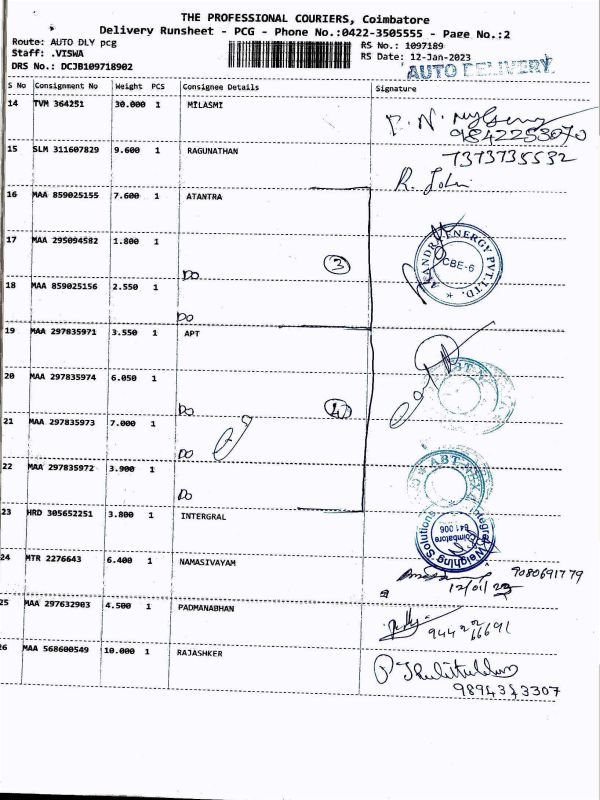 THE PROFESSIONAL COURIERS, Coimbatore
Delivery Runsheet - PCG - Phone No.:0422-3505555 - Page No.:2
Route: AUTO DLY pcg
Staff: .VISWA
DRS No.: DCJB109718902
RS No.: 1097189
RS Date: 12-Jan-2023
AUTO DELIVERY
S No Consignment No Weight PCS Consignee Details Signature
14 TVM 364251 30.000 1 MILASMI
9842253070
15 SLM 311607829 9.600 1 RAGUNATHAN 7373735532
R. John
16 MAA 859025155 7.600 1 ATANTRA
17 MAA 295094582 1.800 1
DO 3
CBE-6
ENERGY PVT.LTD.
18 MAA 859025156 2.550 1
DO
19 MAA 297835971 3.550 1 APT
20 MAA 297835974 6.050 1
DO 4
21 MAA 297835973 7.000 1
DO
22 MAA 297835972 3.900 1
DO
23 HRD 305652251 3.800 1 INTERGRAL
Integral Weighing Solutions
Coimbatore
641 006
24 MTR 2276643 6.400 1 NAMASIVAYAM
9080691779
12/01/23
25 MAA 297632903 4.500 1 PADMANABHAN
26 MAA 568600549 10.000 1 RAJASHKER
9894343307